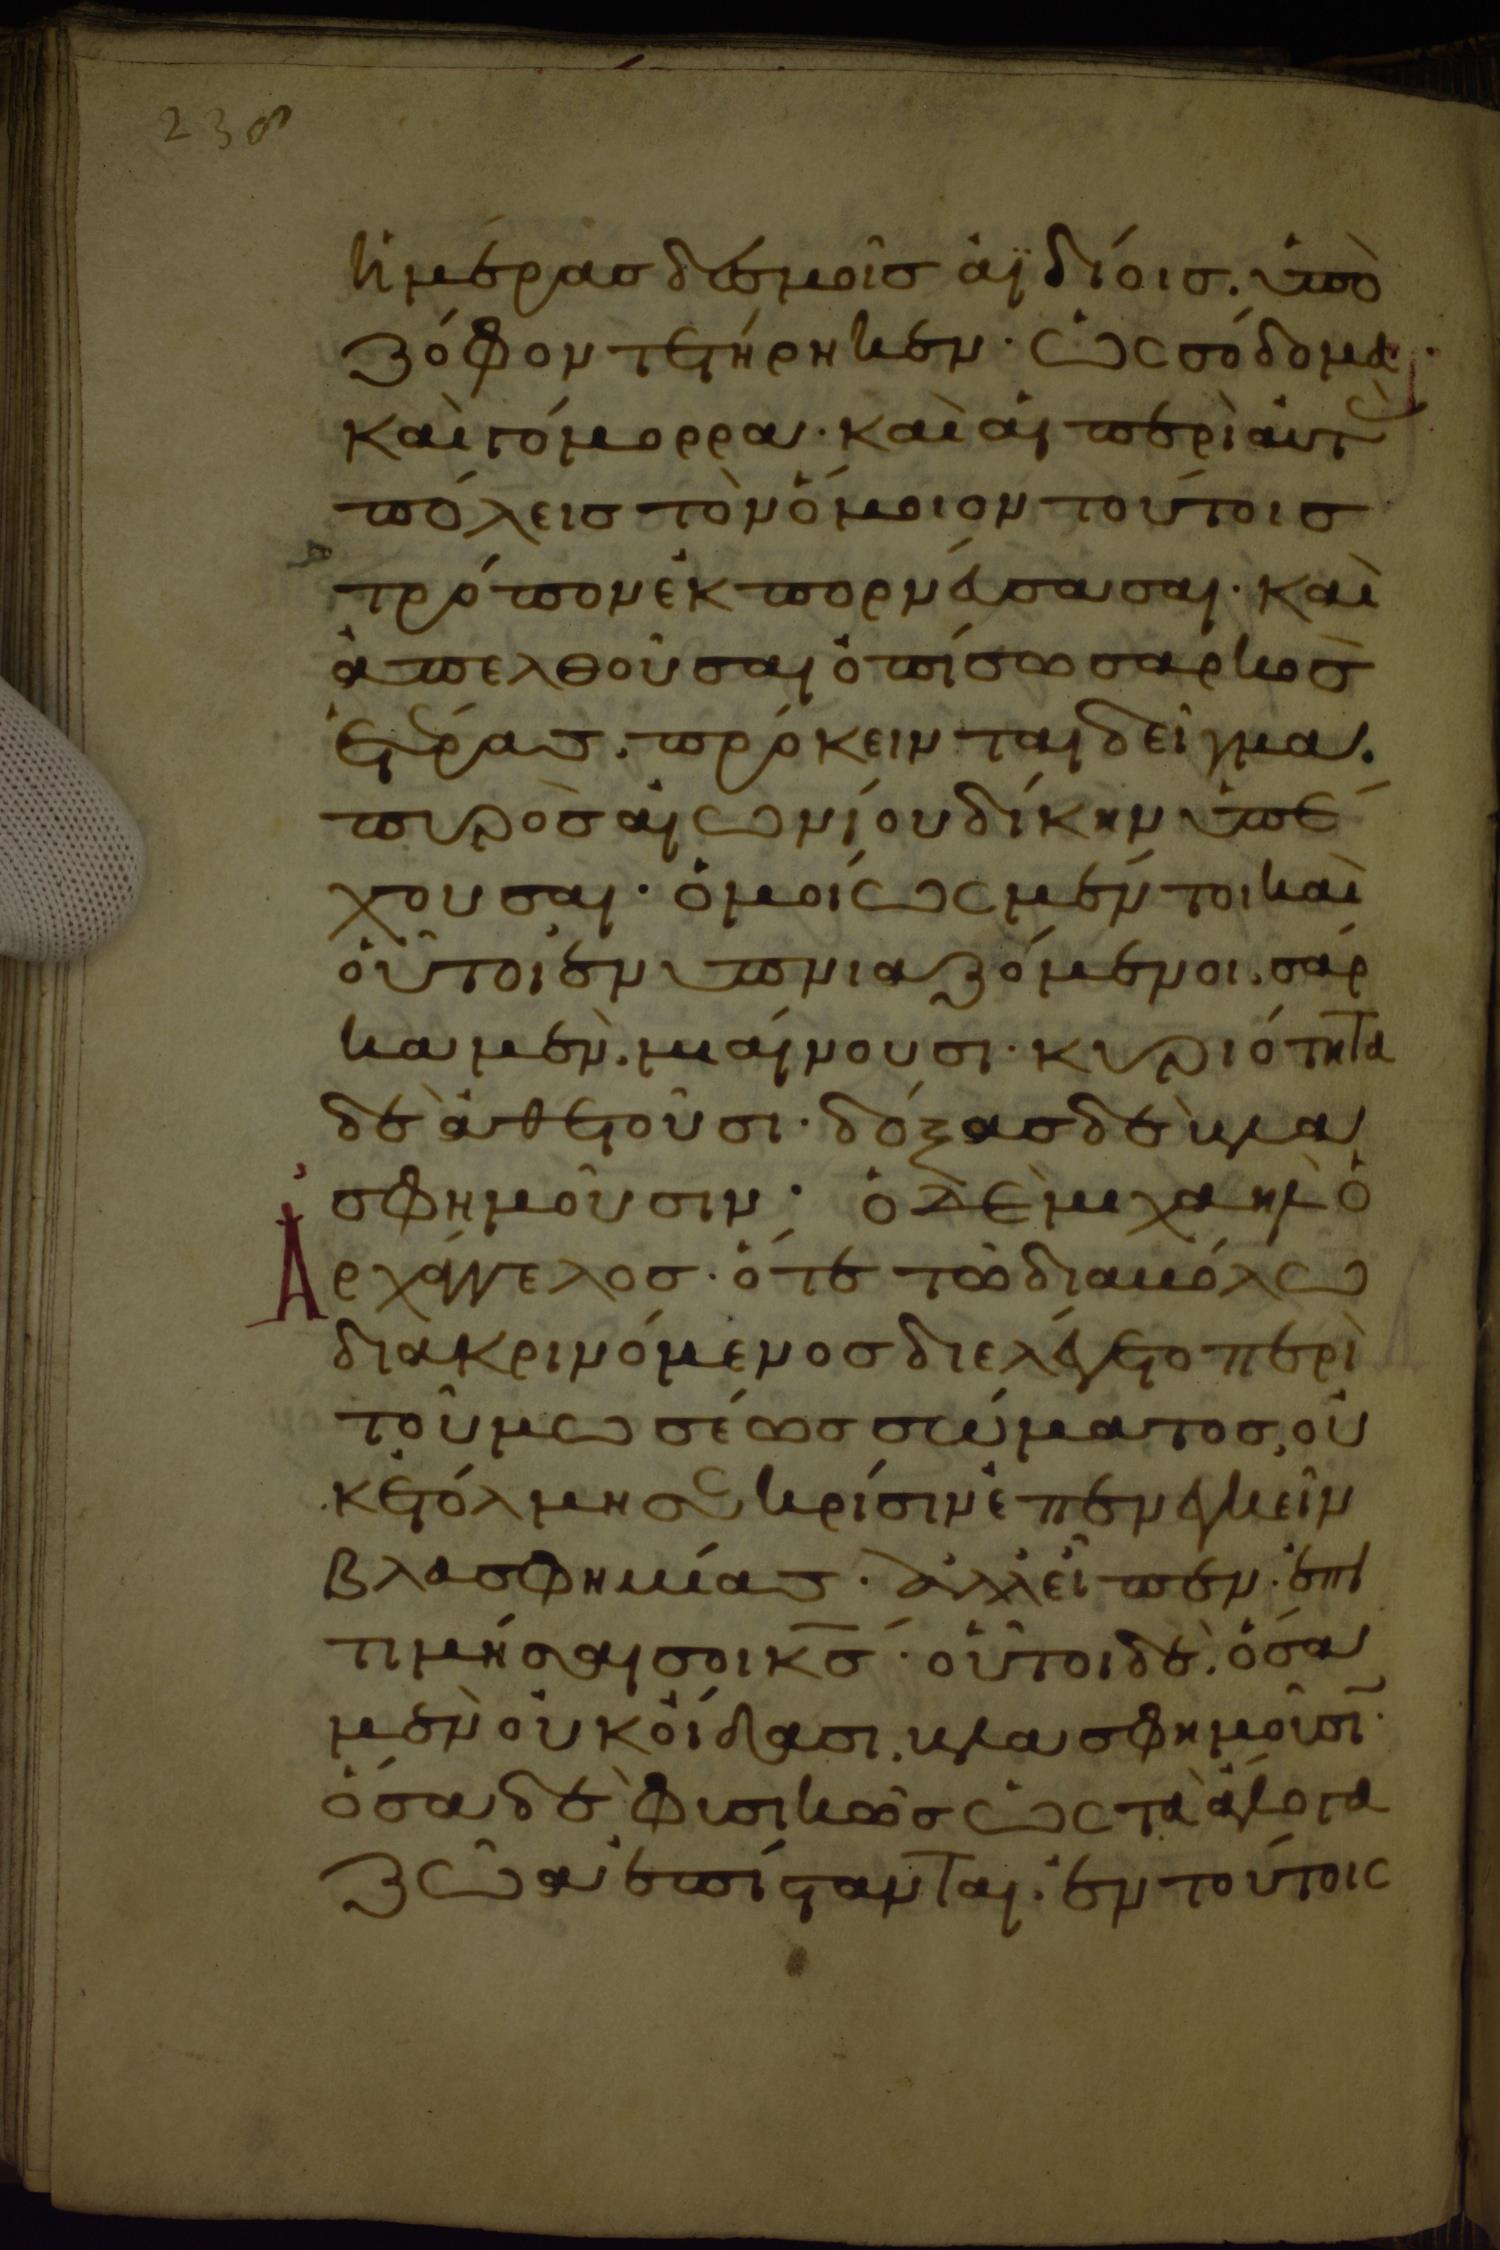 238
ἡμέρας δεσμοῖς ἀϊδίοις. ὑπὸ
ζόφον τετήρηκεν· ὡς σόδομα
καὶ γόμορρα· καὶ αἱ περὶ αὐτ
πόλεις τὸν ὅμοιον τούτοις
τρόπον ἐκπορνεύσασαι· καὶ
ἀπελθοῦσαι ὀπίσω σαρκὸς
ἑτέρας. πρόκεινται δεῖγμα.
πυρὸς αἰωνίου δίκην ὑπέ
χουσαι· ὁμοίως μέντοι καὶ
οὗτοι ἐνυπνιαζόμενοι. σάρ
κα μὲν. μιαίνουσι· κυριότητα
δὲ ἀθετοῦσι· δόξας δὲ βλα
σφημοῦσιν· ὁ δὲ μιχαὴλ ὁ
Ἀρχάγγελος· ὅτε τῶ διαβόλω
διακρινόμενος διελέγετο περὶ
τοῦ μωσέως σώματος, οὐ
κ ἐτόλμησε κρίσιν ἐπενεγκεῖν
βλασφημίας· ἀλλ εἶπεν· ἐπι
τιμήσαι σοι κς· οὗτοι δὲ. ὅσα
μὲν οὐκ οἴδασι. βλασφημοῦσι·
ὅσα δὲ φυσικῶς ὡς τὰ ἄλογα
ζῶα ἐπίστανται· ἐν τούτοις